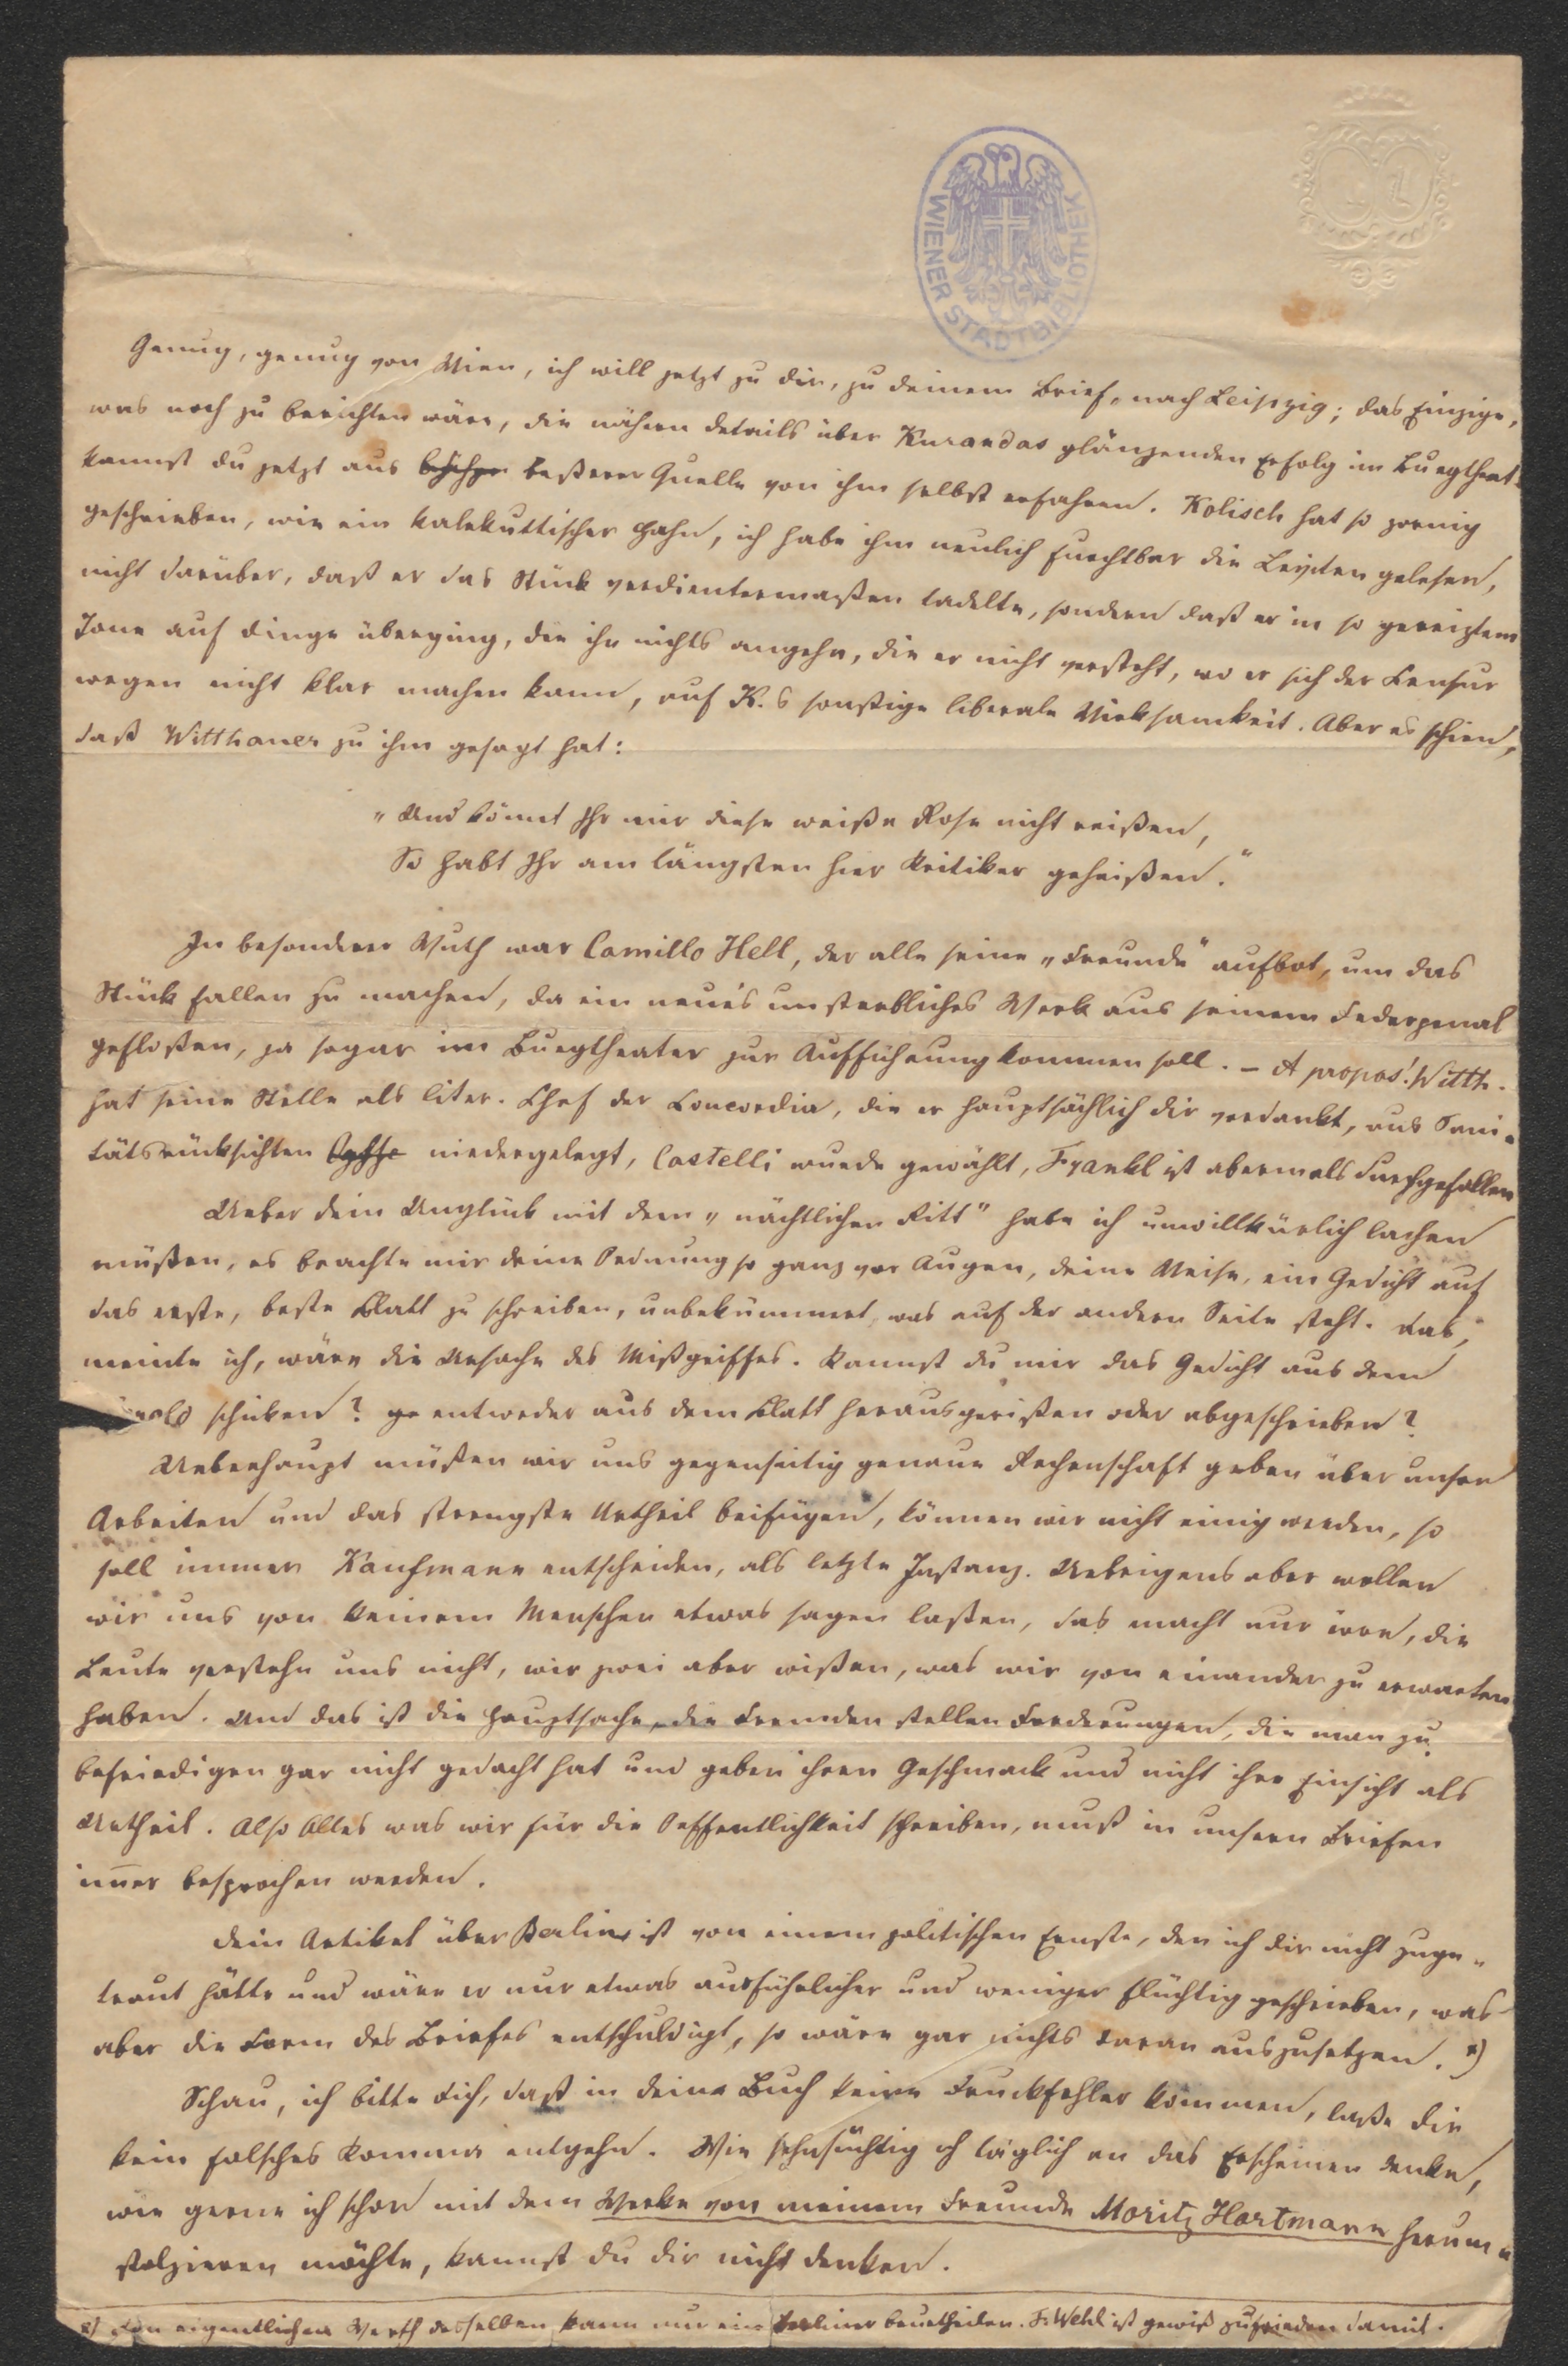 WIENER STADTBIBLIOTHEK
Genug, genug von Wien, ich will jetzt zu dir, zu deinem Brief, nach Leipzig; das Einzige,
was noch zu berichten wäre, die nähern Details über Kurandas glänzenden Erfolg im Burgtheat.
kannst du jetzt aus beßerer Quelle von ihm selbst erfahren. Kolisch hat so zornig
geschrieben, wie ein kalekuttischer Hahn, ich habe ihm neulich furchtbar die Leviten gelesen,
nicht darüber, daß er das Stück verdientermaßen tadelte, sondern daß er in so gereiztem
Tone auf Dinge überging, die ihn nichts angehn, die er nicht versteht, wo er sich der Censur
wegen nicht klar machen kann, auf K.s sonstige liberale Wirksamkeit. Aber es schien,
daß Witthauer zu ihm gesagt hat:
„Und könnt Ihr mir diese weiße Rose nicht reißen,
So habt Ihr am längsten hier Kritiker geheißen."
In besonderer Wuth war Camillo Hell, der alle seine „Freunde" aufbot, um das
Stück fallen zu machen, da ein neues unsterbliches Werk aus seinem Federpenal
gefloßen, ja sogar im Burgtheater zur Aufführung kommen soll. – A propos! Witth.
hat seine Stelle als liter. Chef der Concordia, die er hauptsächlich dir verdankt, aus Sani-
tätsrücksichten niedergelegt, Castelli wurde gewählt, Frankl ist abermals durchgefallen
Ueber dein Unglück mit dem „nächtlichen Ritt" habe ich unwillkürlich lachen
müßen, es brachte mir deine Ordnung so ganz vor Augen, deine Weise, ein Gedicht auf
das erste, beste Blatt zu schreiben, unbekümmert, was auf der andern Seite steht. Das,
meinte ich, wäre die Ursache des Mißgriffes. Kannst du mir das Gedicht aus dem
schicken? entweder aus dem Blatt herausgerißen oder abgeschrieben?
Ueberhaupt müßen wir uns gegenseitig genaue Rechenschaft geben über unsere
Arbeiten und das strengste Urtheil beifügen, können wir nicht einig werden, so
soll immer Kaufmann entscheiden, als letzte Instanz. Uebrigens aber wollen
wir uns von keinem Menschen etwas sagen laßen, das macht nur irre, die
Leute verstehn uns nicht, wir zwei aber wißen, was wir von einander zu erwarten
haben. Und das ist die Hauptsache, die Fremden stellen Forderungen, die man zu
befriedigen gar nicht gedacht hat und geben ihren Geschmack und nicht ihre Einsicht als
Urtheil. Also Alles was wir für die Oeffentlichkeit schreiben, muß in unsern Briefen
im̄er besprochen werden.
Dein Artikel über Berlin ist von einem politischen Ernste, den ich dir nicht zuge-
traut hätte und wäre er nur etwas ausführlicher und weniger flüchtig geschrieben, was
aber die Form des Briefes entschuldigt, so wäre gar nichts daran auszusetzen. *)
Schau, ich bitte dich, daß in dein Buch keine Druckfehler kommen, laße dir
kein falsches Komma entgehn. Wie sehnsüchtig ich täglich an das Erscheinen denke,
wie gerne ich schon mit dem Werke von meinem Freunde Moritz Hartmann herum-
stolzieren möchte, kannst du dir nicht denken.
*) Den eigentlichen Werth desselben kann nur ein Berliner beurtheilen. F. Wehl ist gewiß zufrieden damit.